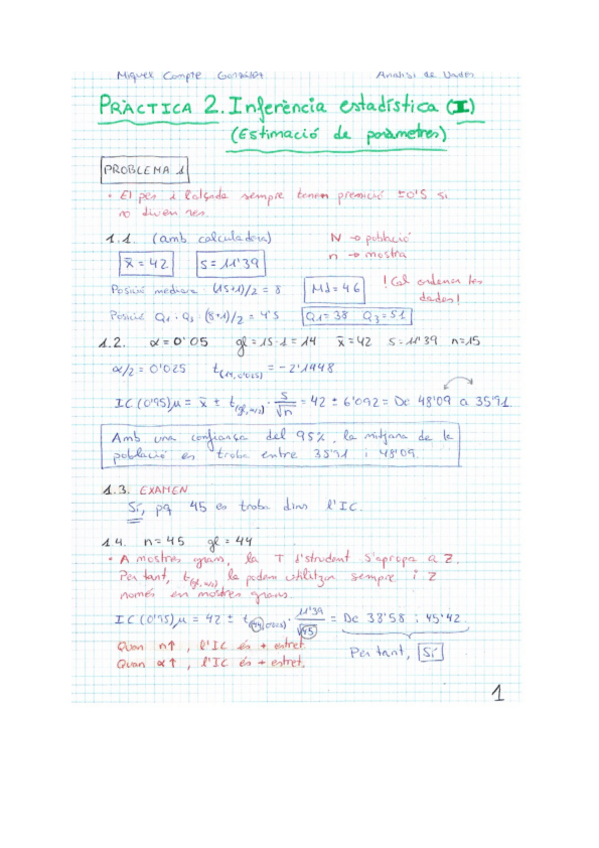 Miquel Compte González Anàlisi de Dades
PRÀCTICA 2. Inferència estadística (I)
(Estimació de paràmetres)
PROBLEMA 1
• El pes i l'alçada sempre tenen precisió ±0'5 si
no diuen res.
1.1. (amb calculadora) N → població
n → mostra
x̄ = 42 s = 11'39
Posició mediana (15+1)/2 = 8 Md = 46 ! Cal ordenar les
dades!
Posició Q1 · Q3 · (8+1)/2 = 4'5 Q1 = 38 Q3 = 51
1.2. α = 0'05 gl = 15-1 = 14 x̄ = 42 s = 11'39 n = 15
α/2 = 0'025 t(14, 0'025) = - 2'1448
IC (0'95) μ = x̄ ± t(gl, α/2) · s/√n = 42 ± 6'092 = De 48'09 a 35'91
Amb una confiança del 95%, la mitjana de la
població es troba entre 35'91 i 48'09.
1.3. EXAMEN
Sí, pq 45 es troba dins l'IC.
1.4. n = 45 gl = 44
• A mostres grans, la T d'Student s'apropa a Z.
Per tant, t(gl, α/2) la podem utilitzar sempre i Z
només en mostres grans.
IC (0'95) μ = 42 ± t(44, 0'025) · 11'39/√45 = De 38'58 i 45'42
Quan n↑, l'IC és + estret.
Quan α↑, l'IC és + estret. Per tant, Sí
1